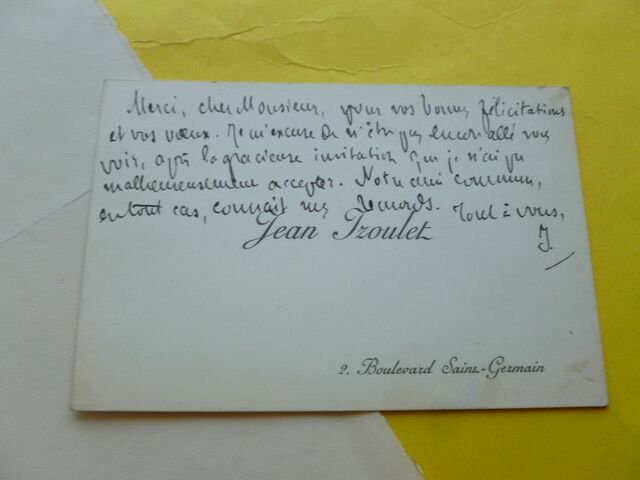 Merci, cher Monsieur, pour vos bonnes félicitations
et vos vœux. Je m'excuse de n'être pas encore allé vous
voir, après la gracieuse invitation que je n'ai pu
malheureusement accepter. Notre ami commun,
en tout cas, connait mes remords. Tout à vous,
J.
Jean Izoulet
2, Boulevard Saint-Germain